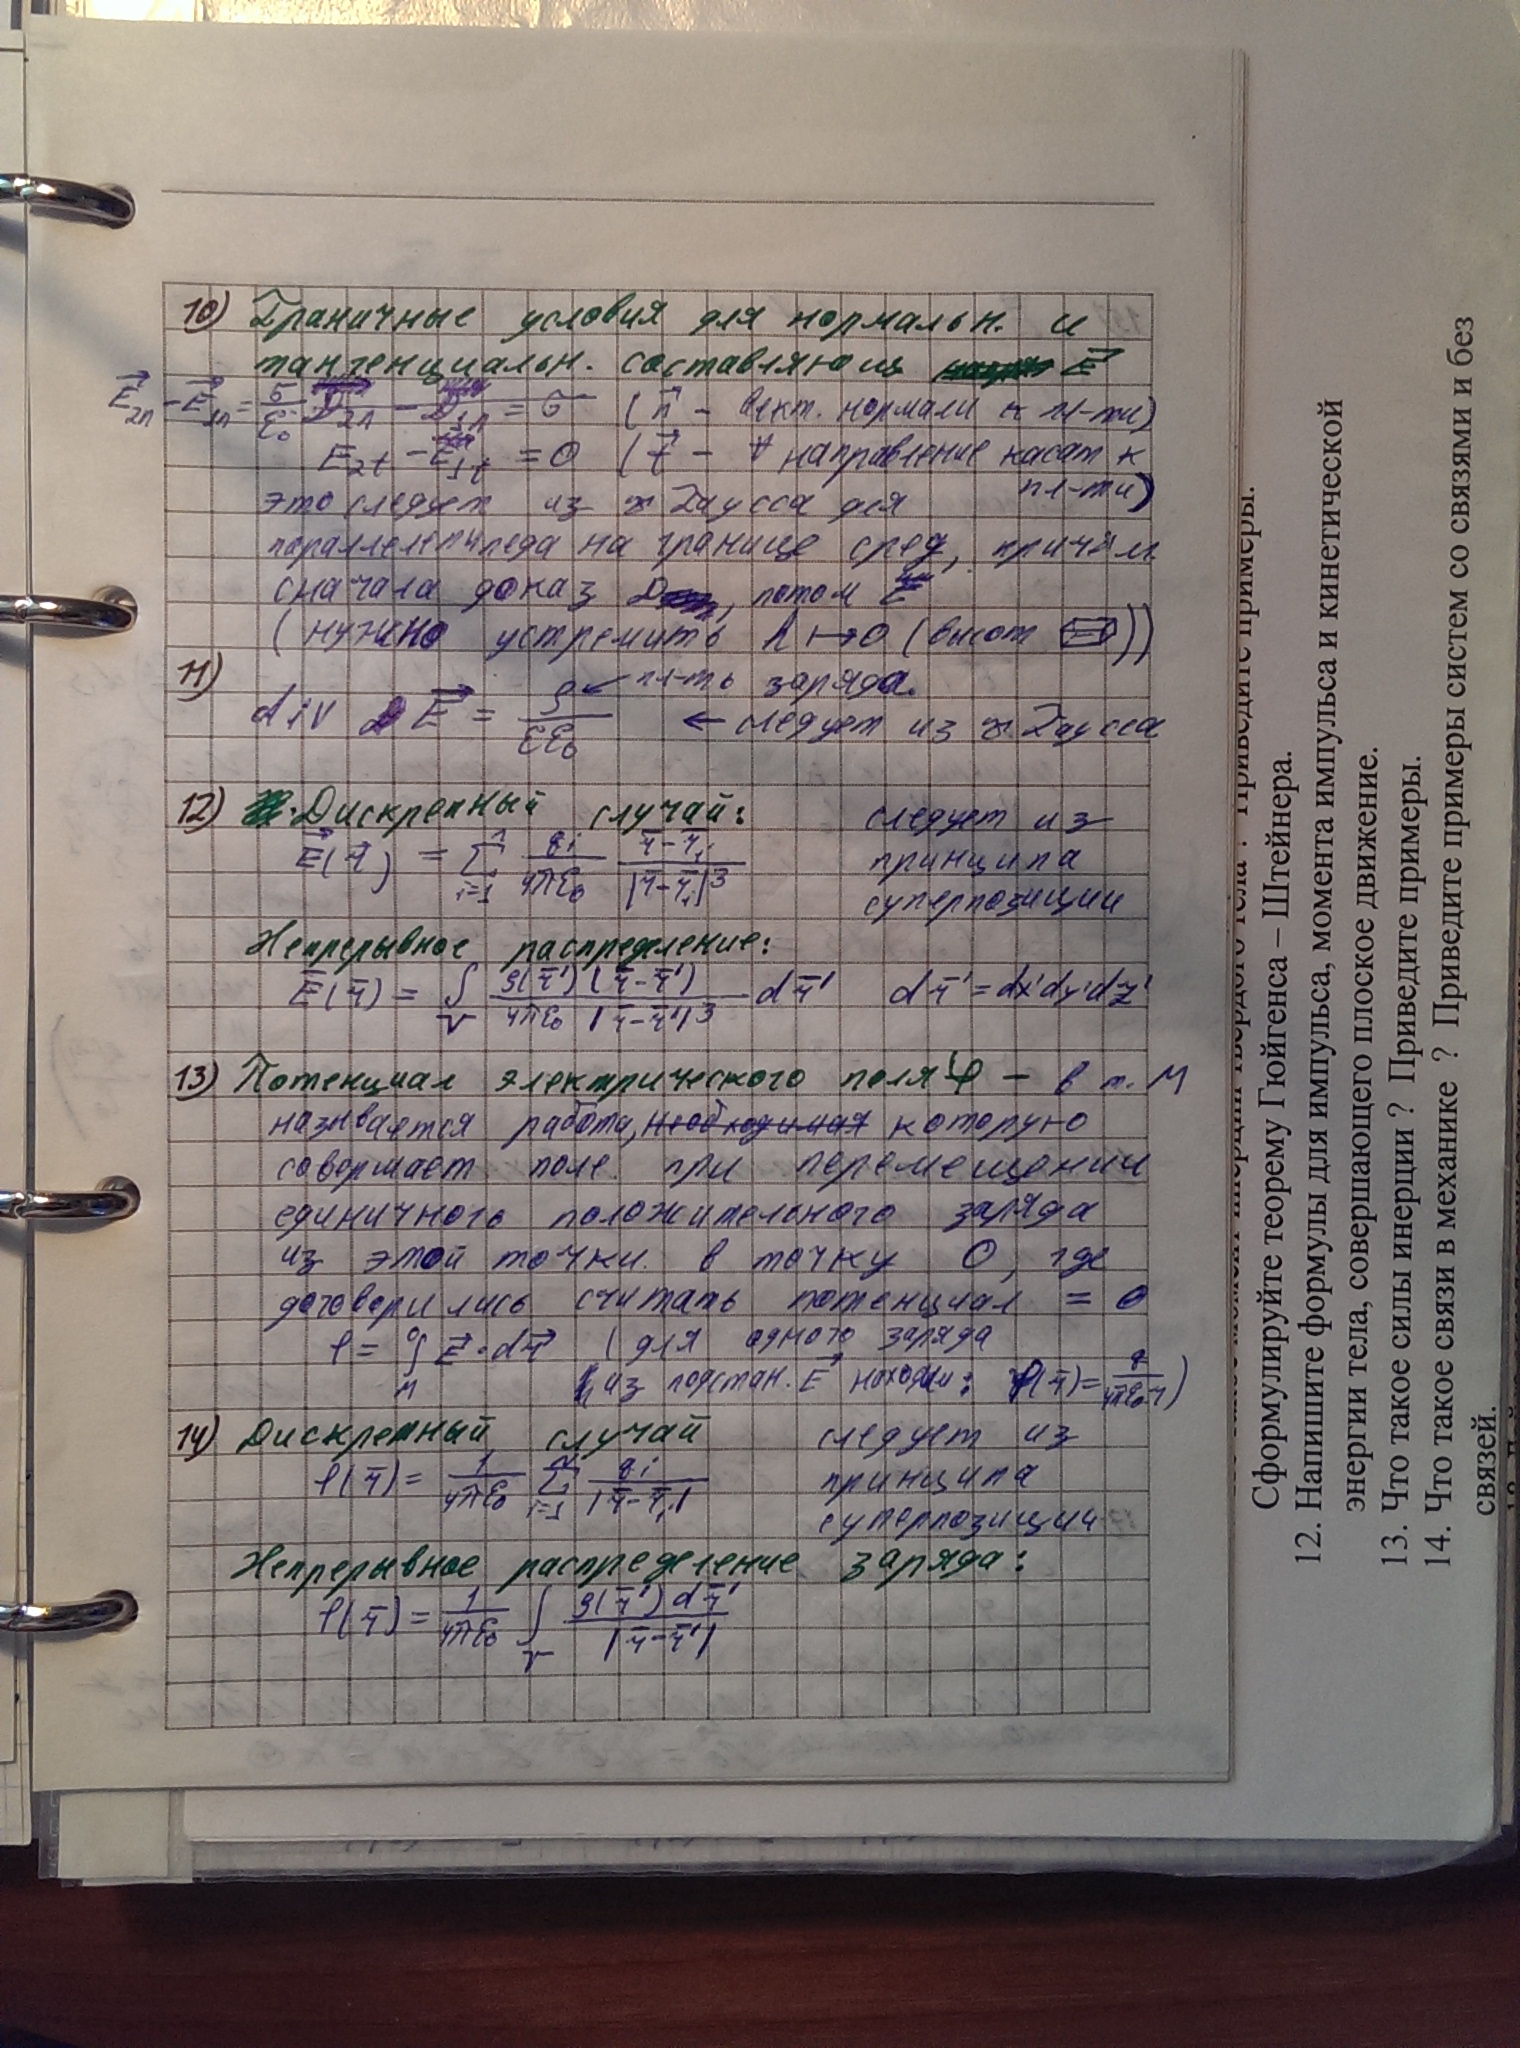 10) Граничные условия для нормальн. и
тангенциальн. составляющ E⃗
E⃗₂ₙ − E⃗₁ₙ = σ/ε₀ D₂ₙ − D₁ₙ = σ (n⃗ – вект. нормали к пл-ти)
E₂t − E₁t = 0 (t⃗ – ∀ направление касат к
пл-ти)
это следует из т Гаусса для
параллелепипеда на границе сред, причём
сначала доказ D, потом E
(нужно устремить h ↦ 0 (высот))
11) div E⃗ = ρ/εε₀ ← пл-ть заряда.
← следует из т. Гаусса
12) Дискретный случай: следует из
E⃗(r⃗) = ∑ᵢ₌₁ⁿ qᵢ/4πε₀ (r̄−r̄ᵢ)/|r̄−r̄ᵢ|³ принципа
суперпозиции
Непрерывное распределение:
E̅(r̄) = ∫_V ρ(r̄')(r̄−r̄')/4πε₀|r̄−r̄'|³ dr̄' dr̄' = dx'dy'dz'
13) Потенциал электрического поля φ – в т. M
называется работа, необходимая которую
совормает поле при перемещении
единичного положительного заряда
из этой точки в точку O, где
договорились считать потенциал = 0
φ = ∫_M^O E⃗·dr⃗ (для одного заряда
из подстан. E⃗ находим: φ(r̄) = q/4πε₀r)
14) Дискретный случай следует из
φ(r̄) = 1/4πε₀ ∑ᵢ₌₁ᴺ qᵢ/|r̄−r̄ᵢ| принципа
суперпозиции
Непрерывное распределение заряда:
φ(r̄) = 1/4πε₀ ∫_V ρ(r̄')dr̄'/|r̄−r̄'|
Приведите примеры.
Сформулируйте теорему Гюйгенса – Штейнера.
12. Напишите формулы для импульса, момента импульса и кинетической
энергии тела, совершающего плоское движение.
13. Что такое силы инерции ? Приведите примеры.
14. Что такое связи в механике ? Приведите примеры систем со связями и без
связей.